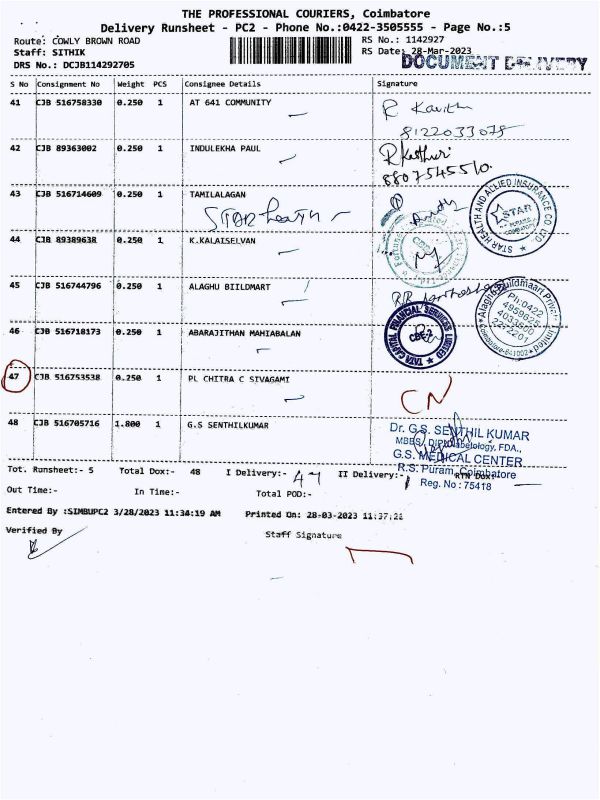 THE PROFESSIONAL COURIERS, Coimbatore
Delivery Runsheet - PC2 - Phone No.:0422-3505555 - Page No.:5
Route: COWLY BROWN ROAD
RS No.: 1142927
Staff: SITHIK
RS Date: 28-Mar-2023
DRS No.: DCJB114292705
DOCUMENT DELIVERY
S No Consignment No Weight PCS Consignee Details Signature
41 CJB 516758330 0.250 1 AT 641 COMMUNITY
R Kavith
8122033078
42 CJB 89363002 0.250 1 INDULEKHA PAUL
8807545510.
43 CJB 516714609 0.250 1 TAMILALAGAN
STAR health
STAR HEALTH AND ALLIED INSURANCE CO LTD
STAR
44 CJB 89389638 0.250 1 K.KALAISELVAN
45 CJB 516744796 0.250 1 ALAGHU BIILDMART
Alaghu Buildmaart Private Limited
Ph:0422
4959625
2272201
Coimbatore-641002
46 CJB 516718173 0.250 1 ABARAJITHAN MAHIABALAN
TATA CAPITAL FINANCIAL SERVICES LIMITED
CBE-2
47 CJB 516753538 0.250 1 PL CHITRA C SIVAGAMI
CN
48 CJB 516705716 1.800 1 G.S SENTHILKUMAR
Dr. G.S. SENTHIL KUMAR
MBBS, FDA.,
G.S. MEDICAL CENTER
R.S. Puram, Coimbatore
Reg. No : 75418
Tot. Runsheet:- 5 Total Dox:- 48 I Delivery:- 47 II Delivery:- 1 RTN Dox:-
Out Time:- In Time:- Total POD:-
Entered By :SIMBUPC2 3/28/2023 11:34:19 AM Printed On: 28-03-2023 11:37:22
Verified By
Staff Signature